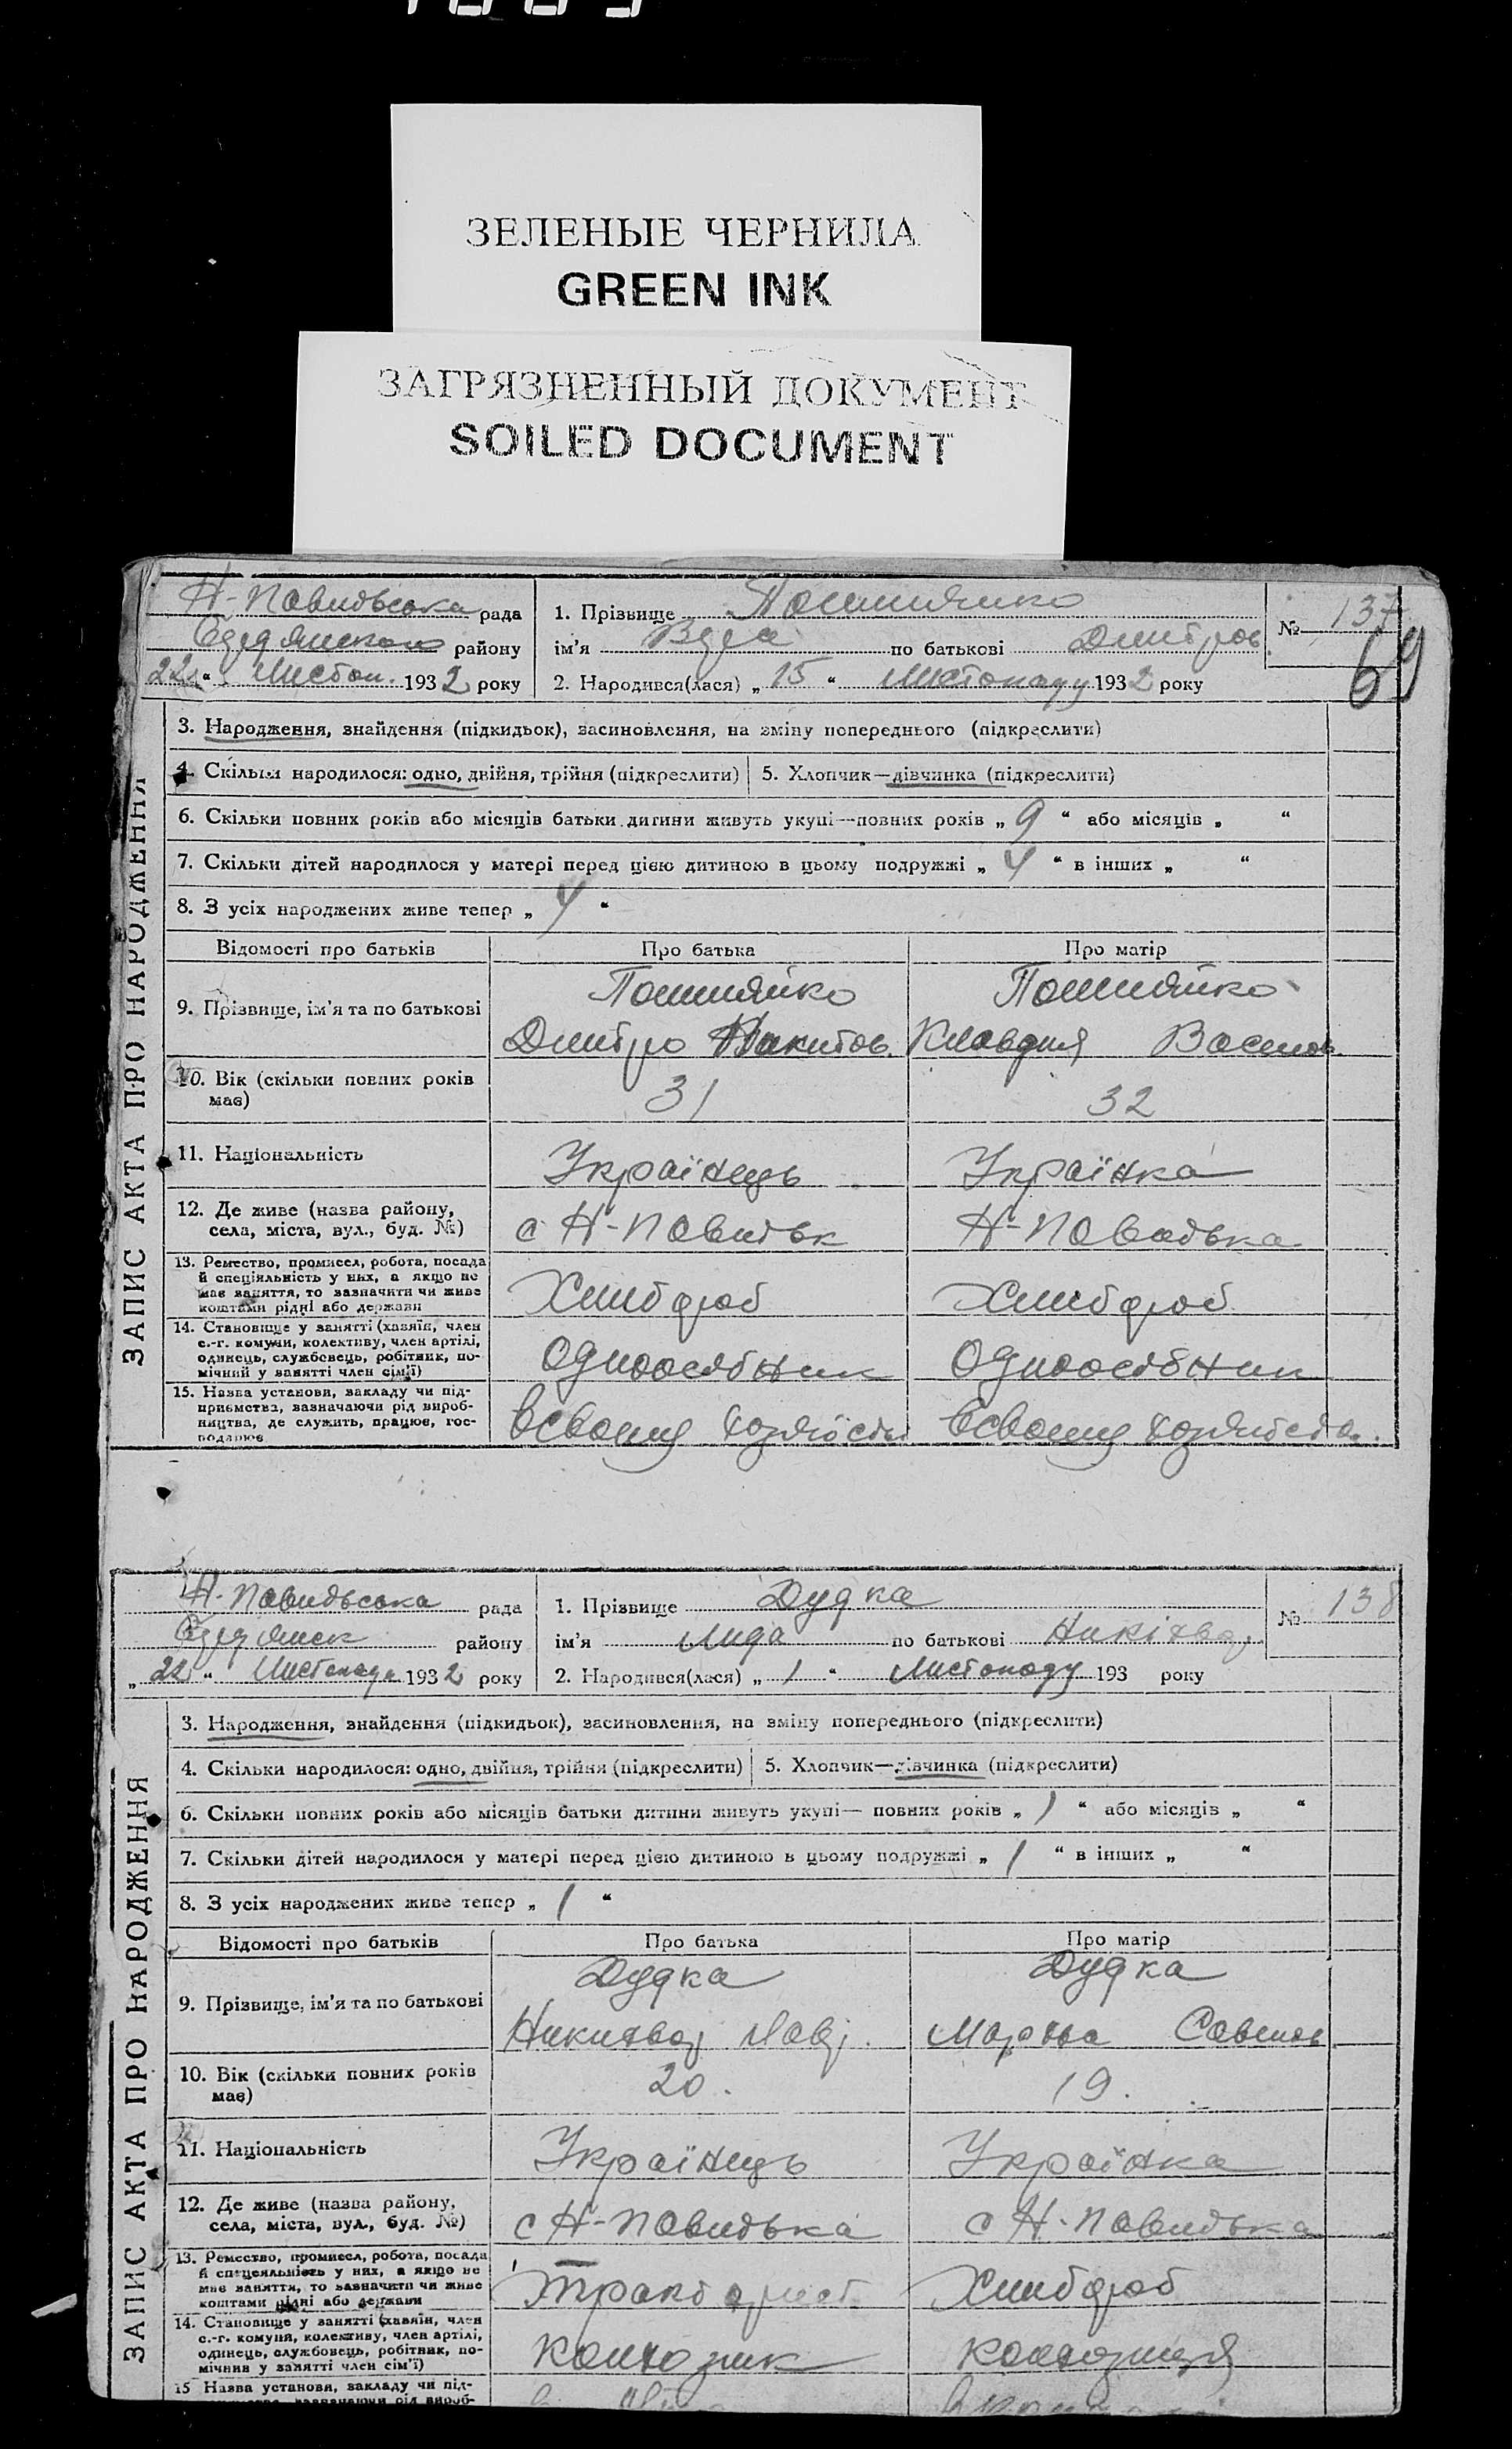 ЗЕЛЕНЫЕ ЧЕРНИЛА
GREEN INK
ЗАГРЯЗНЕННЫЙ ДОКУМЕНТ
SOILED DOCUMENT
рада
району
22 " Листоп. 1932 року
1. Прізвище
ім'я по батькові Дмитров
2. Народився(лася) „ 15 " Листопаду 1932 року
№ 137
69
ЗАПИС АКТА ПРО НАРОДЖЕННЯ
3. Народження, знайдення (підкидьок), засиновлення, на зміну попереднього (підкреслити)
4. Скільки народилося: одно, двійня, трійня (підкреслити)
5. Хлопчик—дівчинка (підкреслити)
6. Скільки повних років або місяців батьки дитини живуть укупі—повних років „ 9 " або місяців „ "
7. Скільки дітей народилося у матері перед цією дитиною в цьому подружжі „ 4 " в інших „ "
8. З усіх народжених живе тепер „ 4 "
Відомості про батьків
Про батька
Про матір
9. Прізвище, ім'я та по батькові
Дмитро Никитов.
Клавдия Васильов
10. Вік (скільки повних років
має)
31
32
11. Національність
Українець
Українка
12. Де живе (назва району,
села, міста, вул., буд. №)
13. Ремество, промисел, робота, посада
й спеціяльність у них, а якщо не
має заняття, то зазначити чи живе
коштами рідні або держави
Хлібороб
Хлібороб
14. Становище у занятті (хазяїн, член
с.-г. комуни, колективу, член артілі,
одинець, службовець, робітник, по-
мічний у занятті член сім'ї)
Одноосібник
Одноосібник
15. Назва установи, закладу чи під-
приємства, зазначаючи рід вироб-
ництва, де служить, працює, гос-
подарює
рада
району
„ 22 " Листопада 1932 року
1. Прізвище Дудка
ім'я Лида по батькові
2. Народився(лася) „ 1 " Листопаду 193 року
№ 138
ЗАПИС АКТА ПРО НАРОДЖЕННЯ
3. Народження, знайдення (підкидьок), засиновлення, на зміну попереднього (підкреслити)
4. Скільки народилося: одно, двійня, трійня (підкреслити)
5. Хлопчик—дівчинка (підкреслити)
6. Скільки повних років або місяців батьки дитини живуть укупі— повних років „ 1 " або місяців „ "
7. Скільки дітей народилося у матері перед цією дитиною в цьому подружжі „ 1 " в інших „ "
8. З усіх народжених живе тепер „ 1 "
Відомості про батьків
Про батька
Про матір
9. Прізвище, ім'я та по батькові
Дудка
Дудка
10. Вік (скільки повних років
має)
20.
19.
11. Національність
Українець
Українка
12. Де живе (назва району,
села, міста, вул., буд. №)
13. Ремество, промисел, робота, посада
й спеціяльність у них, а якщо не
має заняття, то зазначити чи живе
коштами рідні або держави
тракторист
Хлібороб
14. Становище у занятті (хазяїн, член
с.-г. комуни, колективу, член артілі,
одинець, службовець, робітник, по-
мічний у занятті член сім'ї)
15 Назва установи, закладу чи під-